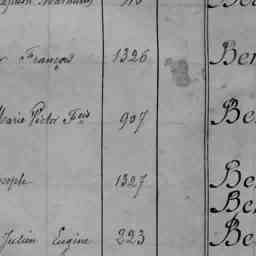 François 1326 Ber
Marie Victor Fçois 907 Be
Joseph 1327 Be
Be
Julien Eugène 223 Be